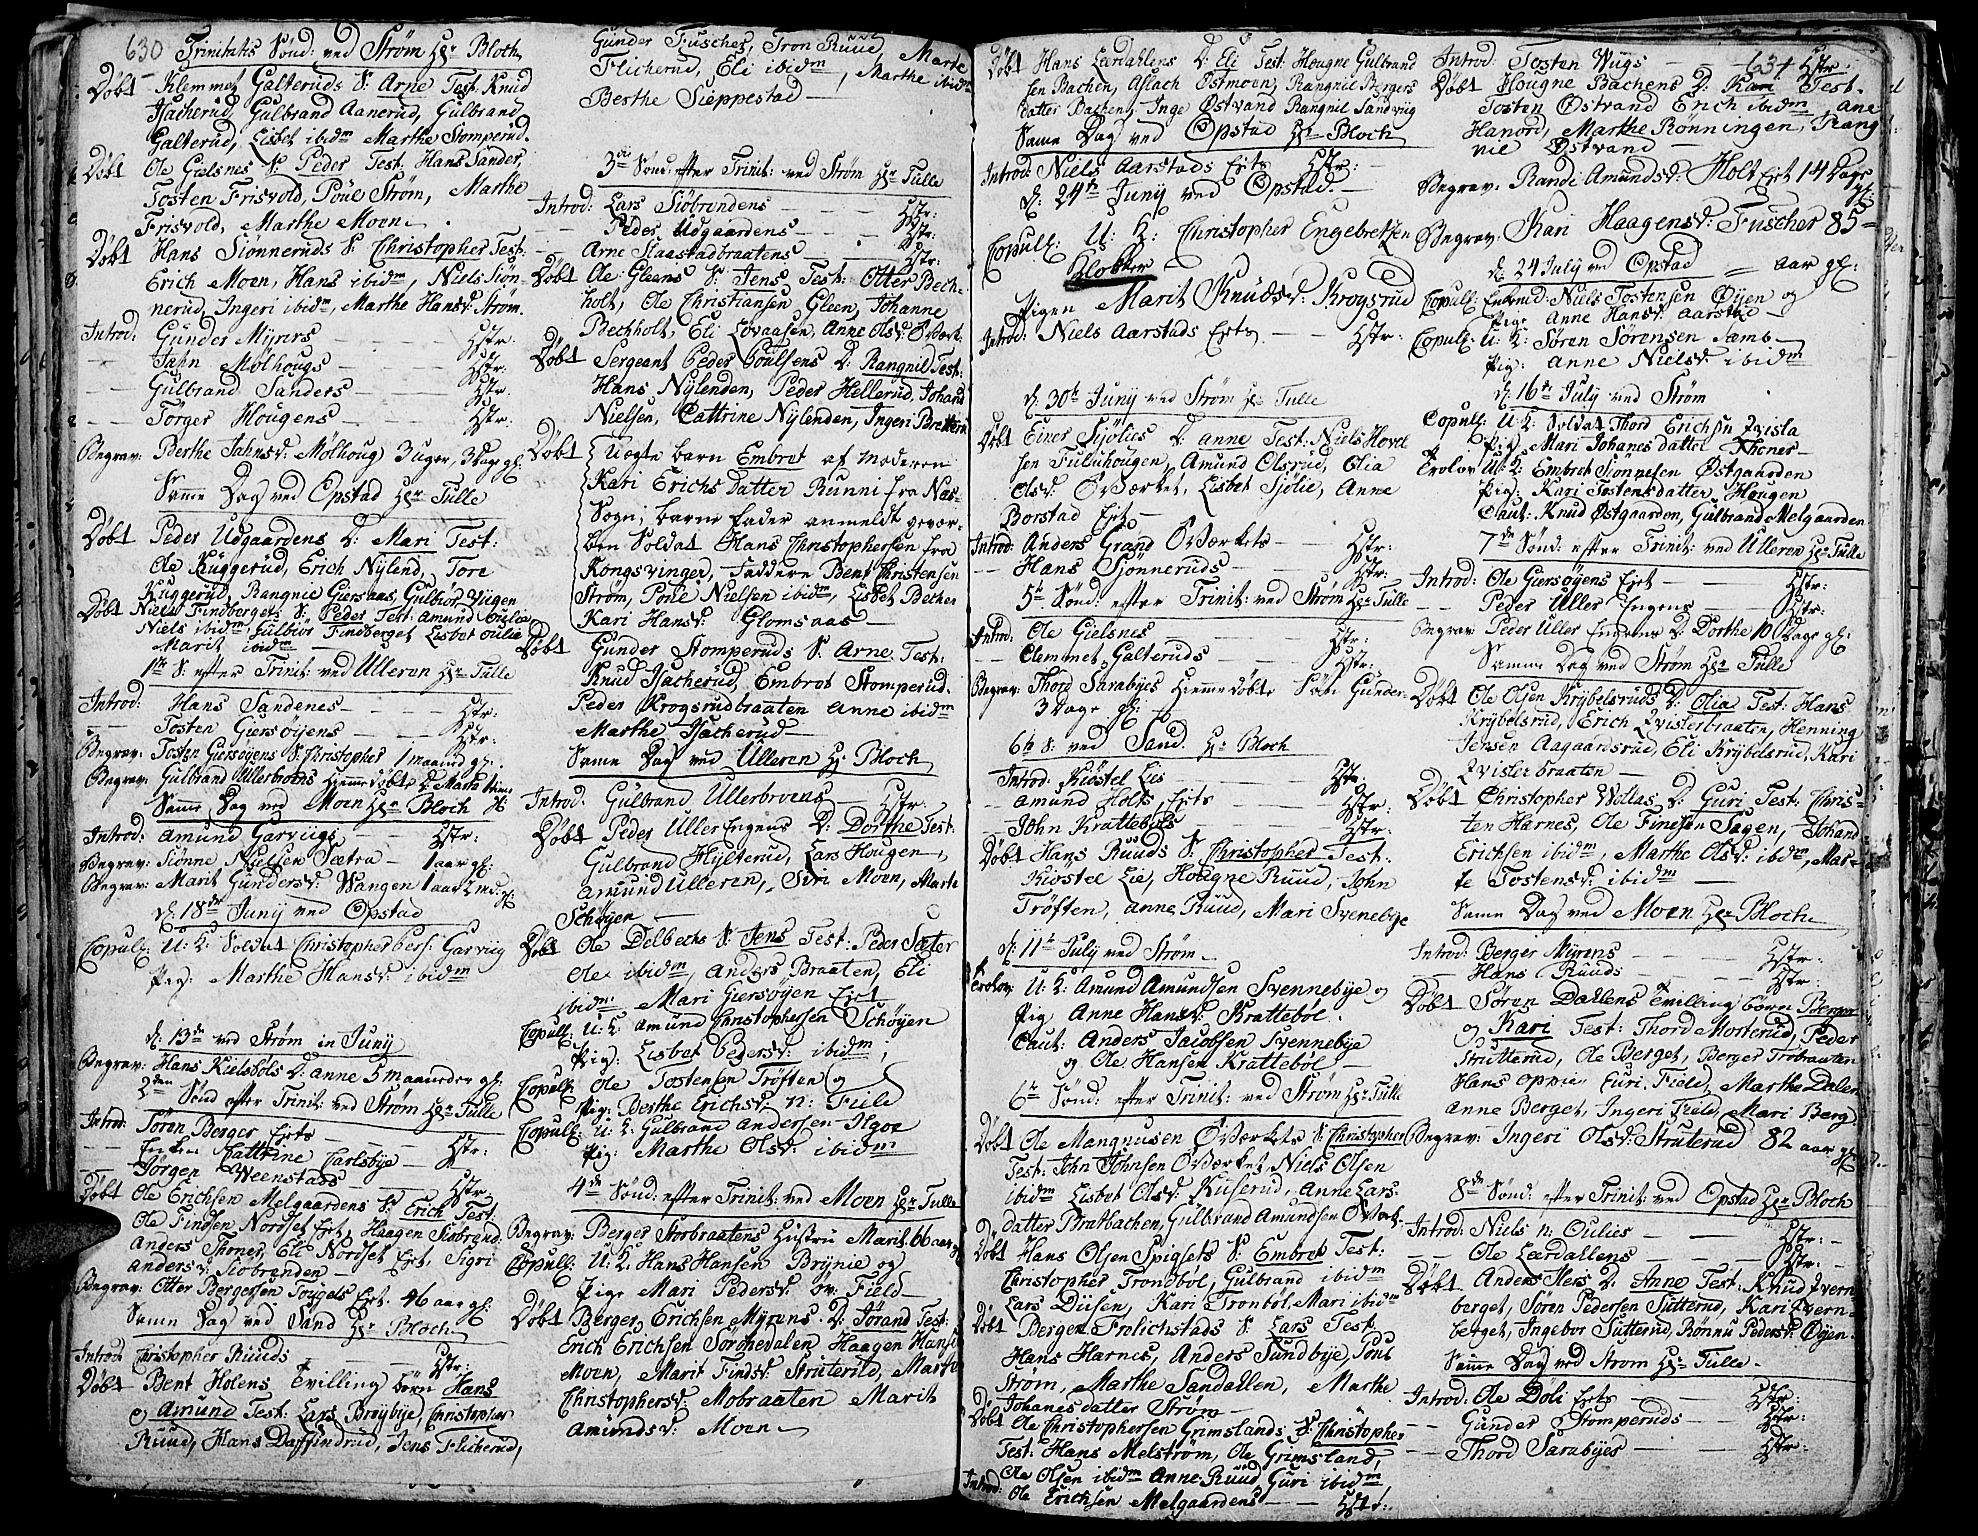 630
Trinitatis Sønd: ved Strøm Hr Bloch
Døbt Klemmet Galteruds S: Arne Test: Knud
Hacherud, Gulbrand Aanerud, Gulbrand
Galterud, Lisbet ibidm Marthe Stomperud
Døbt Ole Gielsnes S: Peder Test: Hans Sander,
Tosten Frisvold, Poúl Strøm, Marthe
Frisvold, Marthe Moen
Døbt Hans Siønneruds S: Christopher Test:
Erich Moen, Hans ibidm, Niels Siøn-
nerud, Ingeri ibidm, Marthe Hansd: Strøm
Introd: Gunder Myrers Hstr:
Jahn Molhougs Hstr:
Gulbrand Sanders Hstr:
Torger Hougens Hstr:
Begrav: Berthe Jahnsd: Molhoug 3 uger, 3 Dage gl:
Samme Dag ved Opstad Hr Tulle
Døbt Peder Udgaardens D: Mari Test:
Ole Kuggerud, Erich Nylend, Tore
Kuggerud, Rangnie Giersaas, Gulbiør Wugen
Døbt Niels Findbergets S: Peder Test: Amund Oulie
Niels ibidm Gulbiør Findberget Lisbet Oulie
Marit ibidm
1ste S: efter Trinit: ved Ulleren Hr Tulle
Introd: Hans Sandenes Hstr:
Tosten Giersøyens Hstr:
Begrav: Tosten Giersøyens S: Christopher 1 maaned gl:
Begrav: Gulbrand Ullerbroens Hiemedøbt D: Marthe
Samme Dag ved Moen Hr Bloch
Introd: Amund Garvugs Hstr:
Begrav: Siønne Nielsen Sætra 1 aar gl:
Begrav: Marit Gundersd: Wangen 1 aar 2 md: gl:
d: 18de Junij ved Opstad
Copull: U: K: Soldat Christopher Pers: Garvug
Pig: Marthe Hansd: ibidm
d: 13de ved Strøm in Junij
Begrav: Hans Kielsbøls D: Anne 5 maaneder gl:
2den Sønd: efter Trinit: ved Strøm Hr Tulle
Introd: Søren Berger Exts
Enken Cattrine Carlsbye Hstr:
Jørgen Weenstads Hstr:
Døbt Ole Erichsen Melgaardens S: Erich Test:
Ole Findsen Nordset Ext, Haagen Siøbrend:
Anders Thoner, Eli Nordset Ext, Sigri
Andersd: Siøbrenden
Begrav: Otter Bergersen Tougels Ext: 46 aar gl:
Samme Dag ved Sand Hr Bloch
Introd: Christopher Ruuds Hstr:
Døbt Bent Holens Tvilling børn Hans
og Amund Test: Lars Brøybye, Christopher
Ruud, Hans Daffindrud, Jens Flicherud,
Gunder Fuscher, Tron Ruud, Marte
Flicherud, Eli ibidm, Marthe ibidm
Berthe Sieppestad
3die Sønd: efter Trinit: ved Strøm Hr Tulle
Introd: Lars Siøbrendens Hstr:
Peder Udgaardens Hstr:
Arne Slaastadbraatens Hstr:
Døbt Ole Gleens S: Jens Test: Otter Bech-
holt, Ole Christiansen Gleen, Johanne
Bechholt, Eli Lovaasen, Anne Olsd: Odverk
Døbt Sergeant Peder Poulsens D: Rangnil Test:
Hans Nylenden, Peder Hellerud, Johan
Nielsen, Cattrine Nylenden, Ingeri Bretten
Døbt Uægte barn Embret af Moderen
Kari Erichsdatter Runni fra Næs
Sogn; barne fader anmeldt gevor-
ben Soldat Hans Christophersen fra
Kongsvinger, Faddere Bent Christensen
Strøm, Poul Nielsen ibidm, Lisbet Becher
Kari Hansd: Glomsaas
Døbt Gunder Stomperuds S: Arne Test:
Knud Hacherud, Embret Stomperud
Peder Krogsrudbraaten Anne ibidm
Marthe Hacherud
Samme Dag ved Ulleren Hr Bloch
Introd: Gulbrand Ullerbroens Hstr:
Døbt Peder Uller Engens D: Dorthe Test:
Gulbrand Hylterud, Lars Hougen,
Amund Ulleren, Siri Moen, Marte
Schøyen
Døbt Ole Delbechs S: Jens Test: Peder Sæter
Ole ibidm, Anders Braaten, Eli
ibidm: Mari Giersøyen Ext
Copull: U: K: Amund Christophersen Schøyen
Pig: Lisbet Pedersd: ibidm;
Copull: Ole Tostensen Trøften og
Pig: Berthe Erichsd: n: Fiele
Copull: U: K: Gulbrand Andersen Ilgoe
Pig: Marthe Olsd: ibidm
4de Sønd: efter Trinit: ved Moen Hr Tulle
Begrav: Berger Storbraatens Hustru Marit 66 aar gl
Copull: U: K: Hans Hansen Brynie og
Pige Mari Pedersd: ov: Field
Døbt Berger Erichsen Myrens D: Jørand Test:
Erich Erichsen Sørhedalen Haagen Hansen
Moen, Marit Findsd: Struterud, Marte
Christophersd: Mobraaten Marit
Amundsd: Moen
Døbt Hans Lerdallens D: Eli Test: Hougne Gulbrand
sen Bachen, Aslach Østmoen, Rangnil Bergers
datter Bachen, Inge Østvand Rangnil Sandvug
Samme Dag ved Opstad Hr Bloch
Introd: Niels Aarstads Exts Hstr:
d: 24de Juny ved Opstad
Copull: U: K: Christopher Engebretsen
Klokker
Pigen Marit Knudsd: Krogsrud
Introd: Niels Aarstads Exts Hstr:
d: 30te Juny ved Strøm Hr Tulle
Døbt Einer Sjølies D: Anne Test: Niels Hovel
sen Fuluhougen, Amund Olsrud, Olia
Olsd: Odværket, Lisbet Sjølie, Anne
Borstad Ext
Introd: Anders Grand Odværkets Hstr:
Hans Siønneruds Hstr:
5te Sønd: efter Trinit: ved Strøm Hr Tulle
Introd: Ole Gielsnes Hstr:
Clemmet Galteruds Hstr:
Begrav: Thord Sarabyes Hiemedøbte Søn Gunder
3 Dage gl:
6te S: ved Sand Hr Bloch
Introd: Kiøstel Lis Hstr:
Amund Holts Exts Hstr:
John Krattebøls Hstr:
Døbt Hans Ruuds S: Christopher Test:
Kiøstel Lie, Hougne Ruud, John
Trøften, Anne Ruud, Mari Svenebye
d: 11te July ved Strøm
Trolov: U: K: Amund Amundsen Svennebye og
Pig Anne Hansd: Krattebøl
Caut: Anders Jacobsen Svennebye
og Ole Hansen Krattebøl
6te Sønd: efter Trinit: ved Strøm Hr Tulle
Døbt Ole Mangnusen Odværkets S: Christopher
Test: John Johnsen Odværket Niels Olsen
ibidm Lisbet Olsd: Kuserud, Anne Lars-
datter Bratbachen, Gulbrand Amundsen Odverk
Døbt Hans Olsen Spigsets S: Embret Test:
Christopher Trondbøl, Gulbrand ibidm
Lars Diisen, Kari Tronbøl, Mari ibidm
Døbt Berger Frolichstads S: Lars Test:
Hans Harnes, Anders Sundbye, Poul
Strøm, Marthe Sandallen, Marthe
Johanesdatter Strøm
Døbt Ole Christophersen Grimslands S: Christopher
Test: Hans Melstrøm, Ole Grimsland,
Ole Olsen ibidm Anne Ruud Guri ibidm
Introd: Ole Erichsen Melgaardens Hstr:
631
Introd: Tosten Wugs Hstr:
Døbt Hougne Bachens D: Kari Test:
Tosten Østvand Erich ibidm, Ane
Hanord, Marthe Rønningen, Rang
nil Østvand
Begrav: Randi Amundsd: Holt Ext 14 Dage gl:
Begrav: Kari Haagensd: Fuscher 85
aar gl:
d: 24 July ved Opstad
Copull: Enkemd: Niels Tostensen Øyen og
Pige Anne Hansd: Aarstad
Copull: U: K: Søren Sørensen Samb
Pig: Anne Nielsd: ibidm
d: 16de July ved Strøm
Copull: U: K: Soldat Thord Erichsen Qvista
Pig: Mari Johanesdatter Thoner
Trolov: U: K: Embret Siønnesen Østgaarden
Pig: Kari Tostensdatter Hougen
Caut: Knud Østgaarden, Gulbrand Melgaarden
7de Sønd: efter Trinit: ved Ulleren Hr Tulle
Introd: Ole Giersøyens Ext Hstr:
Peder Uller Engens Hstr:
Begrav: Peder Uller Engens D: Dorthe 10 Dage gl:
Samme Dag ved Strøm Hr Tulle
Døbt Ole Olsen Krybelsruds D: Olia Test: Hans
Krybelsrud, Erich Qvisterbraaten, Henning
Jensen Aagaardsrud, Eli Krybelsrud, Kari
Qvisterbraaten
Døbt Christopher Wollas D: Guri Test: Chris-
ten Harnes, Ole Finesen Sagen, Johand
Erichsen ibidm, Marthe Olsd: ibidm, Mar-
te Tostensd: ibidm
Samme Dag ved Moen Hr Bloch
Introd: Berger Myrens Hstr:
Hans Ruuds Hstr:
Døbt Søren Dællens Tvilling børn Berger
og Kari Test: Thord Morterud, Peder
Strutterud, Ole Berget, Berger Trobraaten
Hans Oppie, Guri Field, Marthe Dalen
Anne Berget, Ingeri Field, Mari Berg
Begrav: Ingeri Olsd: Struterud 82 aar gl
8de Sønd: efter Trinit: ved Opstad Hr Bloch
Introd: Niels n: Oulies Hstr:
Ole Lærdallens Hstr:
Døbt Anders Hers D: Anne Test: Knud Qvern-
berget, Søren Pedersen Sutterud, Kari Qvern-
berget, Ingebor Sutterud, Rønnu Pedersd: Øyen
Samme Dag ved Strøm Hr Tulle
Introd: Ole Døli Exts Hstr:
Gunder Stomperuds Hstr:
Thord Sarabyes Hstr: